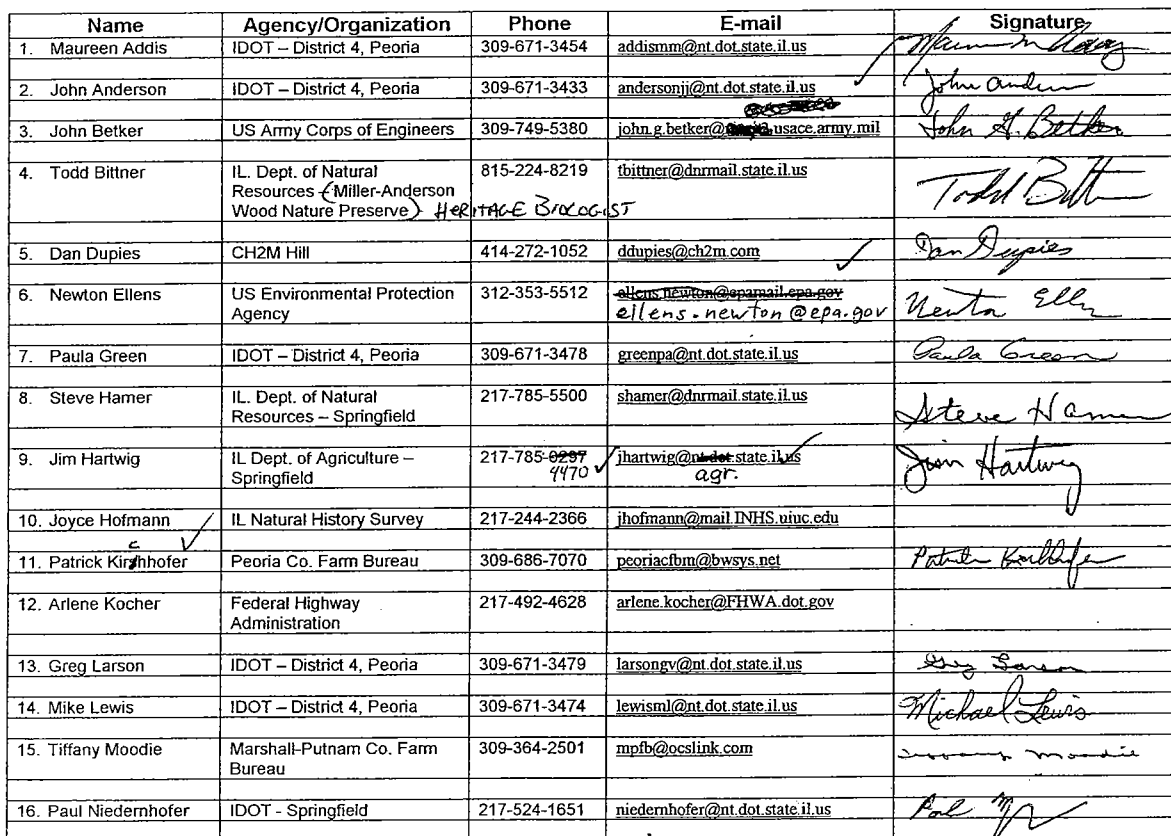 Name Agency/Organization Phone E-mail Signature
1. Maureen Addis IDOT – District 4, Peoria 309-671-3454 addismm@nt.dot.state.il.us
2. John Anderson IDOT – District 4, Peoria 309-671-3433 andersonjj@nt.dot.state.il.us John Anderson
3. John Betker US Army Corps of Engineers 309-749-5380 john.g.betker@ usace.army.mil John G. Betker
4. Todd Bittner IL. Dept. of Natural 815-224-8219 tbittner@dnrmail.state.il.us Todd Bittner
Resources (Miller-Anderson
Wood Nature Preserve) HERITAGE BIOLOGIST
5. Dan Dupies CH2M Hill 414-272-1052 ddupies@ch2m.com Dan Dupies
6. Newton Ellens US Environmental Protection 312-353-5512 ellens.newton@epamail.epa.gov Newton Ellens
Agency ellens.newton@epa.gov
7. Paula Green IDOT – District 4, Peoria 309-671-3478 greenpa@nt.dot.state.il.us Paula Green
8. Steve Hamer IL. Dept. of Natural 217-785-5500 shamer@dnrmail.state.il.us Steve Hamer
Resources – Springfield
9. Jim Hartwig IL Dept. of Agriculture – 217-785-0297 jhartwig@nt.dot.state.il.us Jim Hartwig
Springfield 4470 agr.
10. Joyce Hofmann IL Natural History Survey 217-244-2366 jhofmann@mail.INHS.uiuc.edu
c
11. Patrick Kirshhofer Peoria Co. Farm Bureau 309-686-7070 peoriacfbm@bwsys.net Patrick Kirchhofer
12. Arlene Kocher Federal Highway 217-492-4628 arlene.kocher@FHWA.dot.gov
Administration
13. Greg Larson IDOT – District 4, Peoria 309-671-3479 larsongv@nt.dot.state.il.us Greg Larson
14. Mike Lewis IDOT – District 4, Peoria 309-671-3474 lewisml@nt.dot.state.il.us Michael Lewis
15. Tiffany Moodie Marshall-Putnam Co. Farm 309-364-2501 mpfb@ocslink.com Tiffany Moodie
Bureau
16. Paul Niedernhofer IDOT - Springfield 217-524-1651 niedernhofer@nt.dot.state.il.us Paul